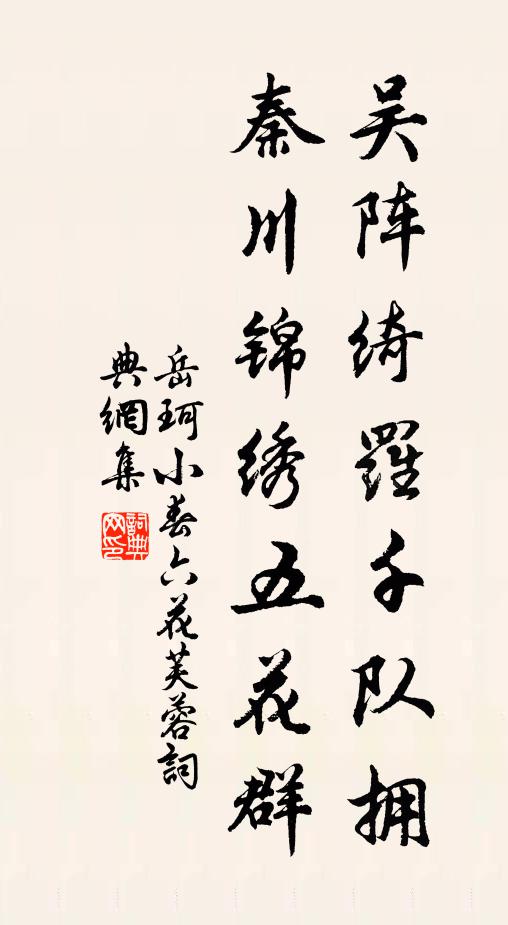 吴阵绮羅千队拥
秦川锦绣五花群
岳珂小春六花芙蓉詞
典網集
詞典網印